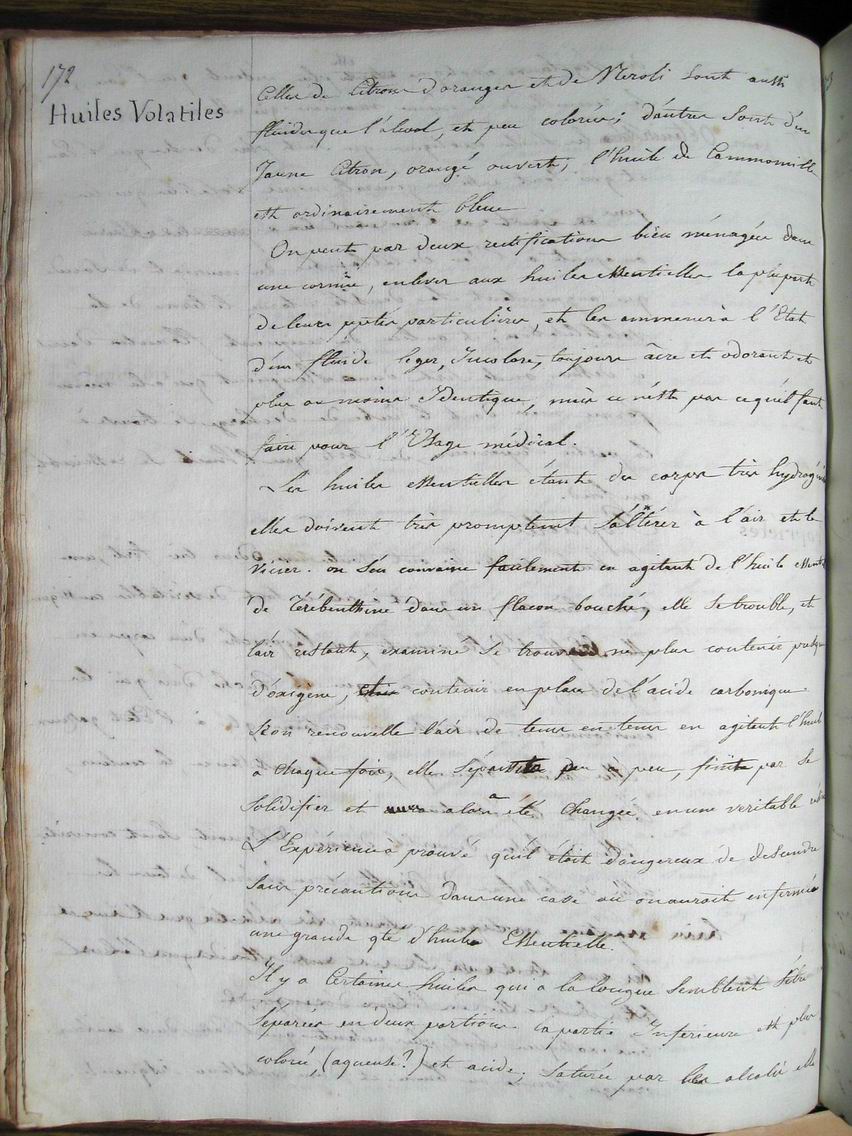 172
Huiles Volatiles
Celles de Citrons d'oranges et de Neroli sont aussi
fluides que l'alcool, et peu colorées; d'autres sont d'un
Jaune Citron, orangé ou vert; l'huile de Cammomille
est ordinairement bleue
On peut par deux rectifications bien ménagées dans
une cornüe, enlever aux huiles essentielles la plupart
de leurs ptés particulières, et les ammener à l'Etat
d'un fluide leger, Incolore, toujours âcre et odorant et
plus ou moins Identique, mais ce n'est pas ce qu'il faut
faire pour l'Usage médical.
Les huiles essentielles étant des corps très hydrogénés
elles doivent très promptement s'altérer à l'air et le
vicier. on s'en convainc facilement en agitant de l'huile essent
de Térébenthine dans un flacon bouché, elle se trouble, et
l'air restant, examiné se trouve ne plus contenir presque
d'oxigène, contenir en place de l'acide carbonique
Si on renouvelle l'air de tems en tems en agitant l'huile
a chaque fois, elle s'épaissit peu à peu, finit par se
solidifier et a alors été changée en une veritable résine
L'Expérience a prouvé qu'il etoit dangereux de descendre
sans précautions dans une cave où on auroit enfermé
une grande qté d'huile Essentielle.
Il y a Certaines huiles qui a la longue semblent s'être
séparées en deux portions. la partie Inferieure est plus
colorée, (aqueuse?) et acide; saturée par les alcalis elle